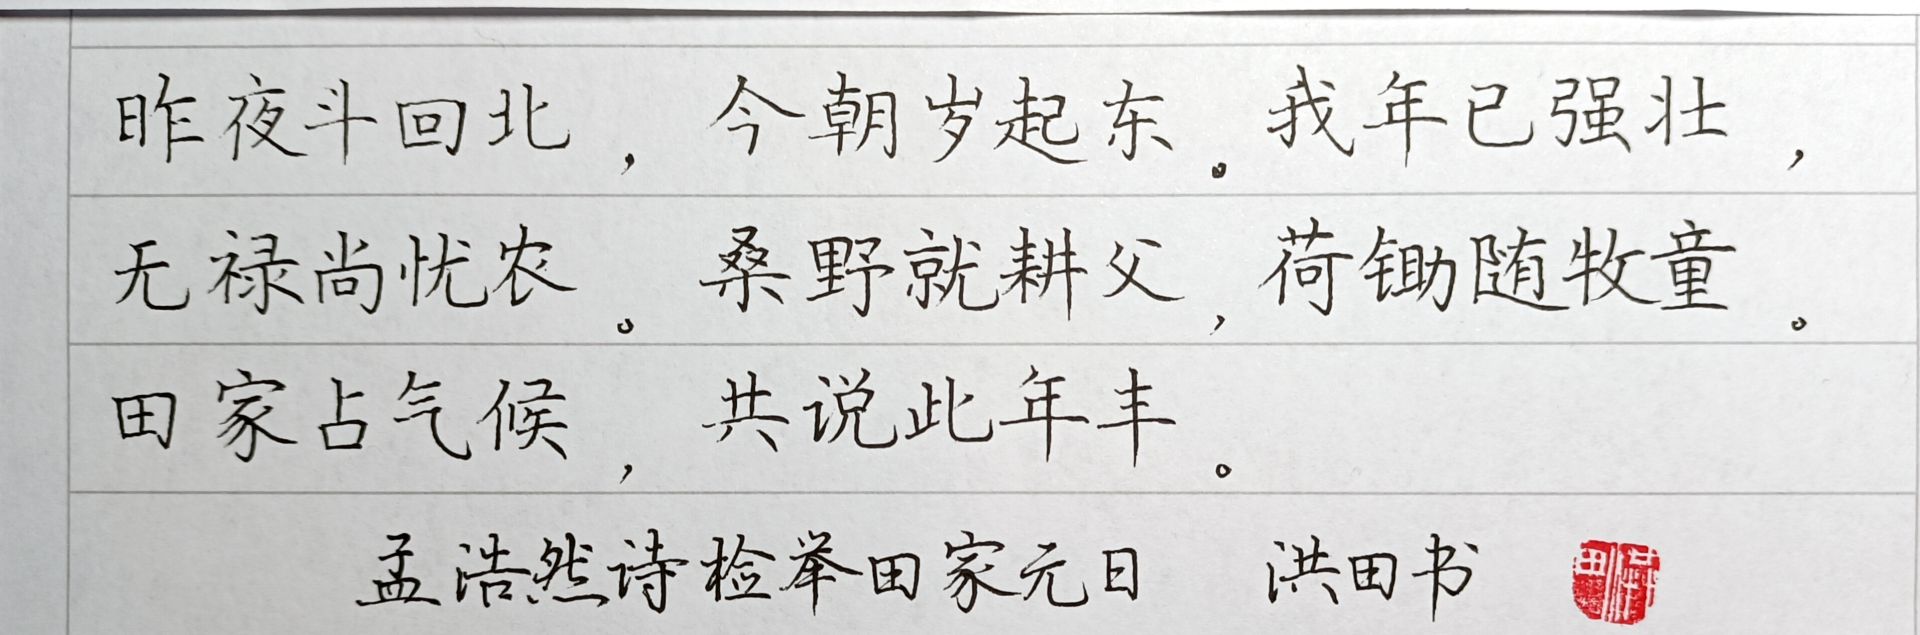 昨夜斗回北，今朝岁起东。我年已强壮，
无禄尚忧农。桑野就耕父，荷锄随牧童。
田家占气候，共说此年丰。
孟浩然诗检举田家元日 洪田书